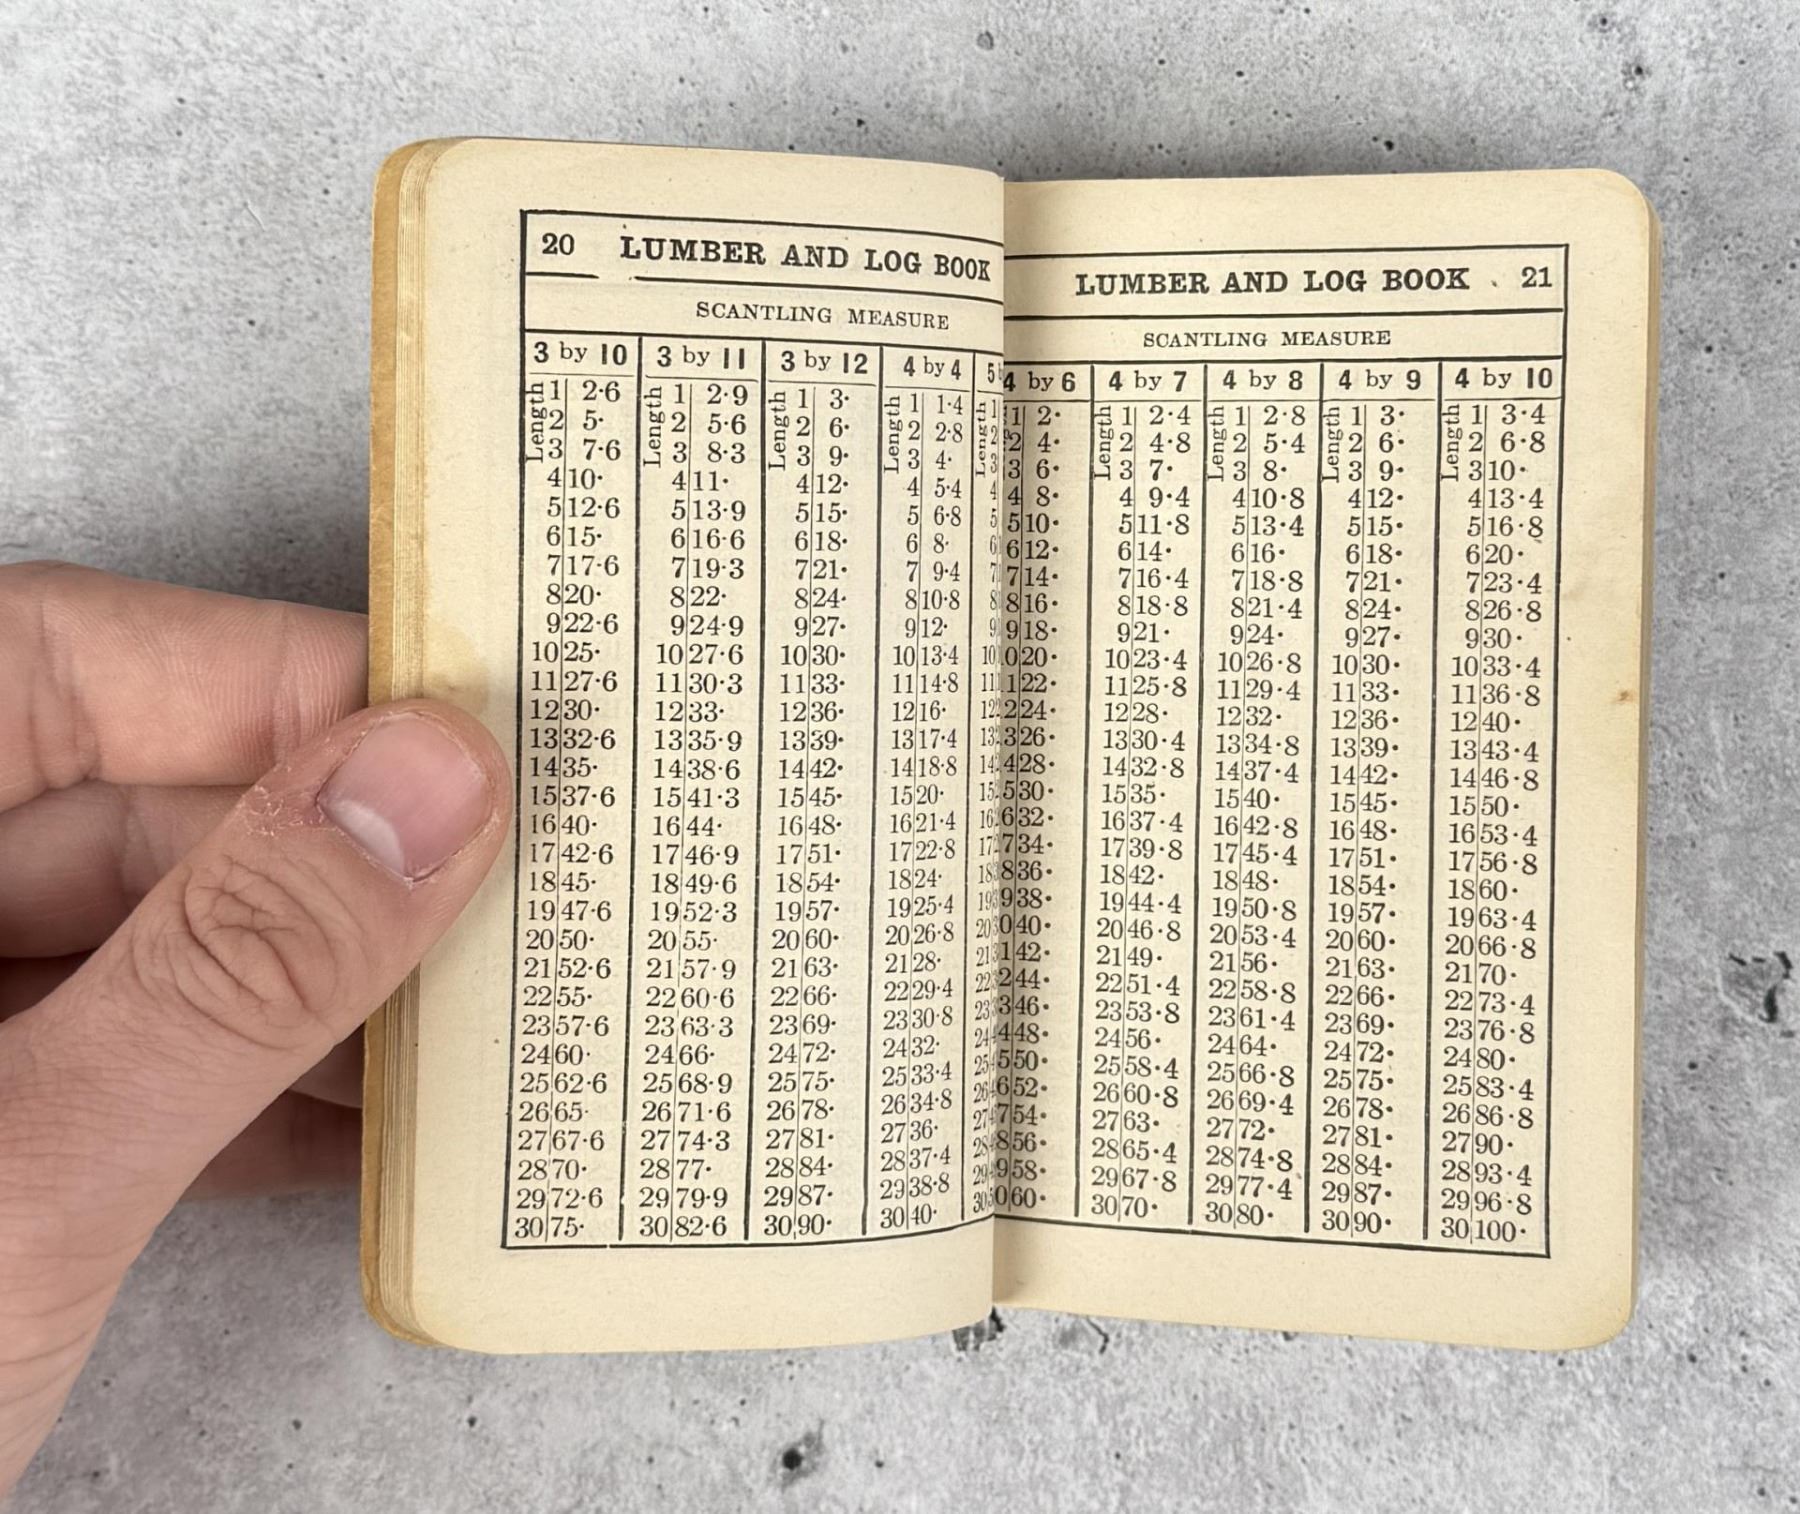 20 LUMBER AND LOG BOOK
SCANTLING MEASURE
3 by 10 3 by 11 3 by 12 4 by 4 5
Length Length Length Length Length
1 2·6 1 2·9 1 3· 1 1·4 1
2 5· 2 5·6 2 6· 2 2·8 2
3 7·6 3 8·3 3 9· 3 4· 3
4 10· 4 11· 4 12· 4 5·4 4
5 12·6 5 13·9 5 15· 5 6·8 5
6 15· 6 16·6 6 18· 6 8· 6
7 17·6 7 19·3 7 21· 7 9·4 7
8 20· 8 22· 8 24· 8 10·8 8
9 22·6 9 24·9 9 27· 9 12· 9
10 25· 10 27·6 10 30· 10 13·4 10
11 27·6 11 30·3 11 33· 11 14·8 11
12 30· 12 33· 12 36· 12 16· 12
13 32·6 13 35·9 13 39· 13 17·4 13
14 35· 14 38·6 14 42· 14 18·8 14
15 37·6 15 41·3 15 45· 15 20· 15
16 40· 16 44· 16 48· 16 21·4 16
17 42·6 17 46·9 17 51· 17 22·8 17
18 45· 18 49·6 18 54· 18 24· 18
19 47·6 19 52·3 19 57· 19 25·4 19
20 50· 20 55· 20 60· 20 26·8 20
21 52·6 21 57·9 21 63· 21 28· 21
22 55· 22 60·6 22 66· 22 29·4 22
23 57·6 23 63·3 23 69· 23 30·8 23
24 60· 24 66· 24 72· 24 32· 24
25 62·6 25 68·9 25 75· 25 33·4 25
26 65· 26 71·6 26 78· 26 34·8 26
27 67·6 27 74·3 27 81· 27 36· 27
28 70· 28 77· 28 84· 28 37·4 28
29 72·6 29 79·9 29 87· 29 38·8 29
30 75· 30 82·6 30 90· 30 40· 30
LUMBER AND LOG BOOK 21
SCANTLING MEASURE
4 by 6 4 by 7 4 by 8 4 by 9 4 by 10
Length Length Length Length
1 2· 1 2·4 1 2·8 1 3· 1 3·4
2 4· 2 4·8 2 5·4 2 6· 2 6·8
3 6· 3 7· 3 8· 3 9· 3 10·
4 8· 4 9·4 4 10·8 4 12· 4 13·4
5 10· 5 11·8 5 13·4 5 15· 5 16·8
6 12· 6 14· 6 16· 6 18· 6 20·
7 14· 7 16·4 7 18·8 7 21· 7 23·4
8 16· 8 18·8 8 21·4 8 24· 8 26·8
9 18· 9 21· 9 24· 9 27· 9 30·
20· 10 23·4 10 26·8 10 30· 10 33·4
22· 11 25·8 11 29·4 11 33· 11 36·8
24· 12 28· 12 32· 12 36· 12 40·
26· 13 30·4 13 34·8 13 39· 13 43·4
28· 14 32·8 14 37·4 14 42· 14 46·8
30· 15 35· 15 40· 15 45· 15 50·
32· 16 37·4 16 42·8 16 48· 16 53·4
34· 17 39·8 17 45·4 17 51· 17 56·8
36· 18 42· 18 48· 18 54· 18 60·
38· 19 44·4 19 50·8 19 57· 19 63·4
40· 20 46·8 20 53·4 20 60· 20 66·8
42· 21 49· 21 56· 21 63· 21 70·
44· 22 51·4 22 58·8 22 66· 22 73·4
46· 23 53·8 23 61·4 23 69· 23 76·8
48· 24 56· 24 64· 24 72· 24 80·
50· 25 58·4 25 66·8 25 75· 25 83·4
52· 26 60·8 26 69·4 26 78· 26 86·8
54· 27 63· 27 72· 27 81· 27 90·
56· 28 65·4 28 74·8 28 84· 28 93·4
58· 29 67·8 29 77·4 29 87· 29 96·8
60· 30 70· 30 80· 30 90· 30 100·